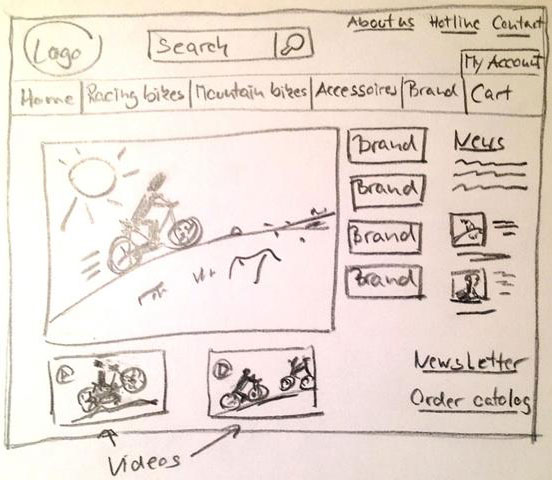 About us Hotline Contact
Logo
Search
My Account
Home Racing bikes Mountain bikes Accessoires Brand Cart
Brand
News
Brand
Brand
Brand
Newsletter
Order catalog
Videos